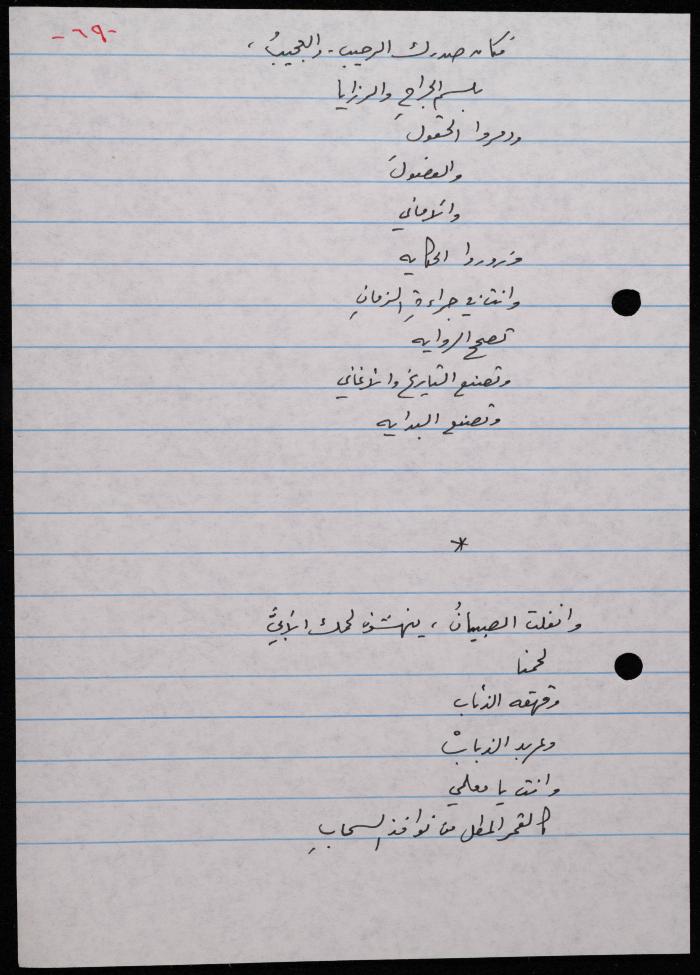 -٦٩-
فكان صدرك الرحيب.. والعجيبُ،
بلسم الجراحِ والرزايا
ودمروا الحقول
والفصولَ
والأماني
وزوروا الحكايه
وانت في جراءةِ الزمانِ
تصحح الروايه
وتصنع التاريخ والاغاني
وتصنع البدايه
*
وانفلت الصبيانُ، ينهشون لحمك الأبيَّ
لحمنا
وقهقه الذئاب
وعربد الذبابْ
وانت يا معلمي
كالقمر المطل من نوافذ السحابِ